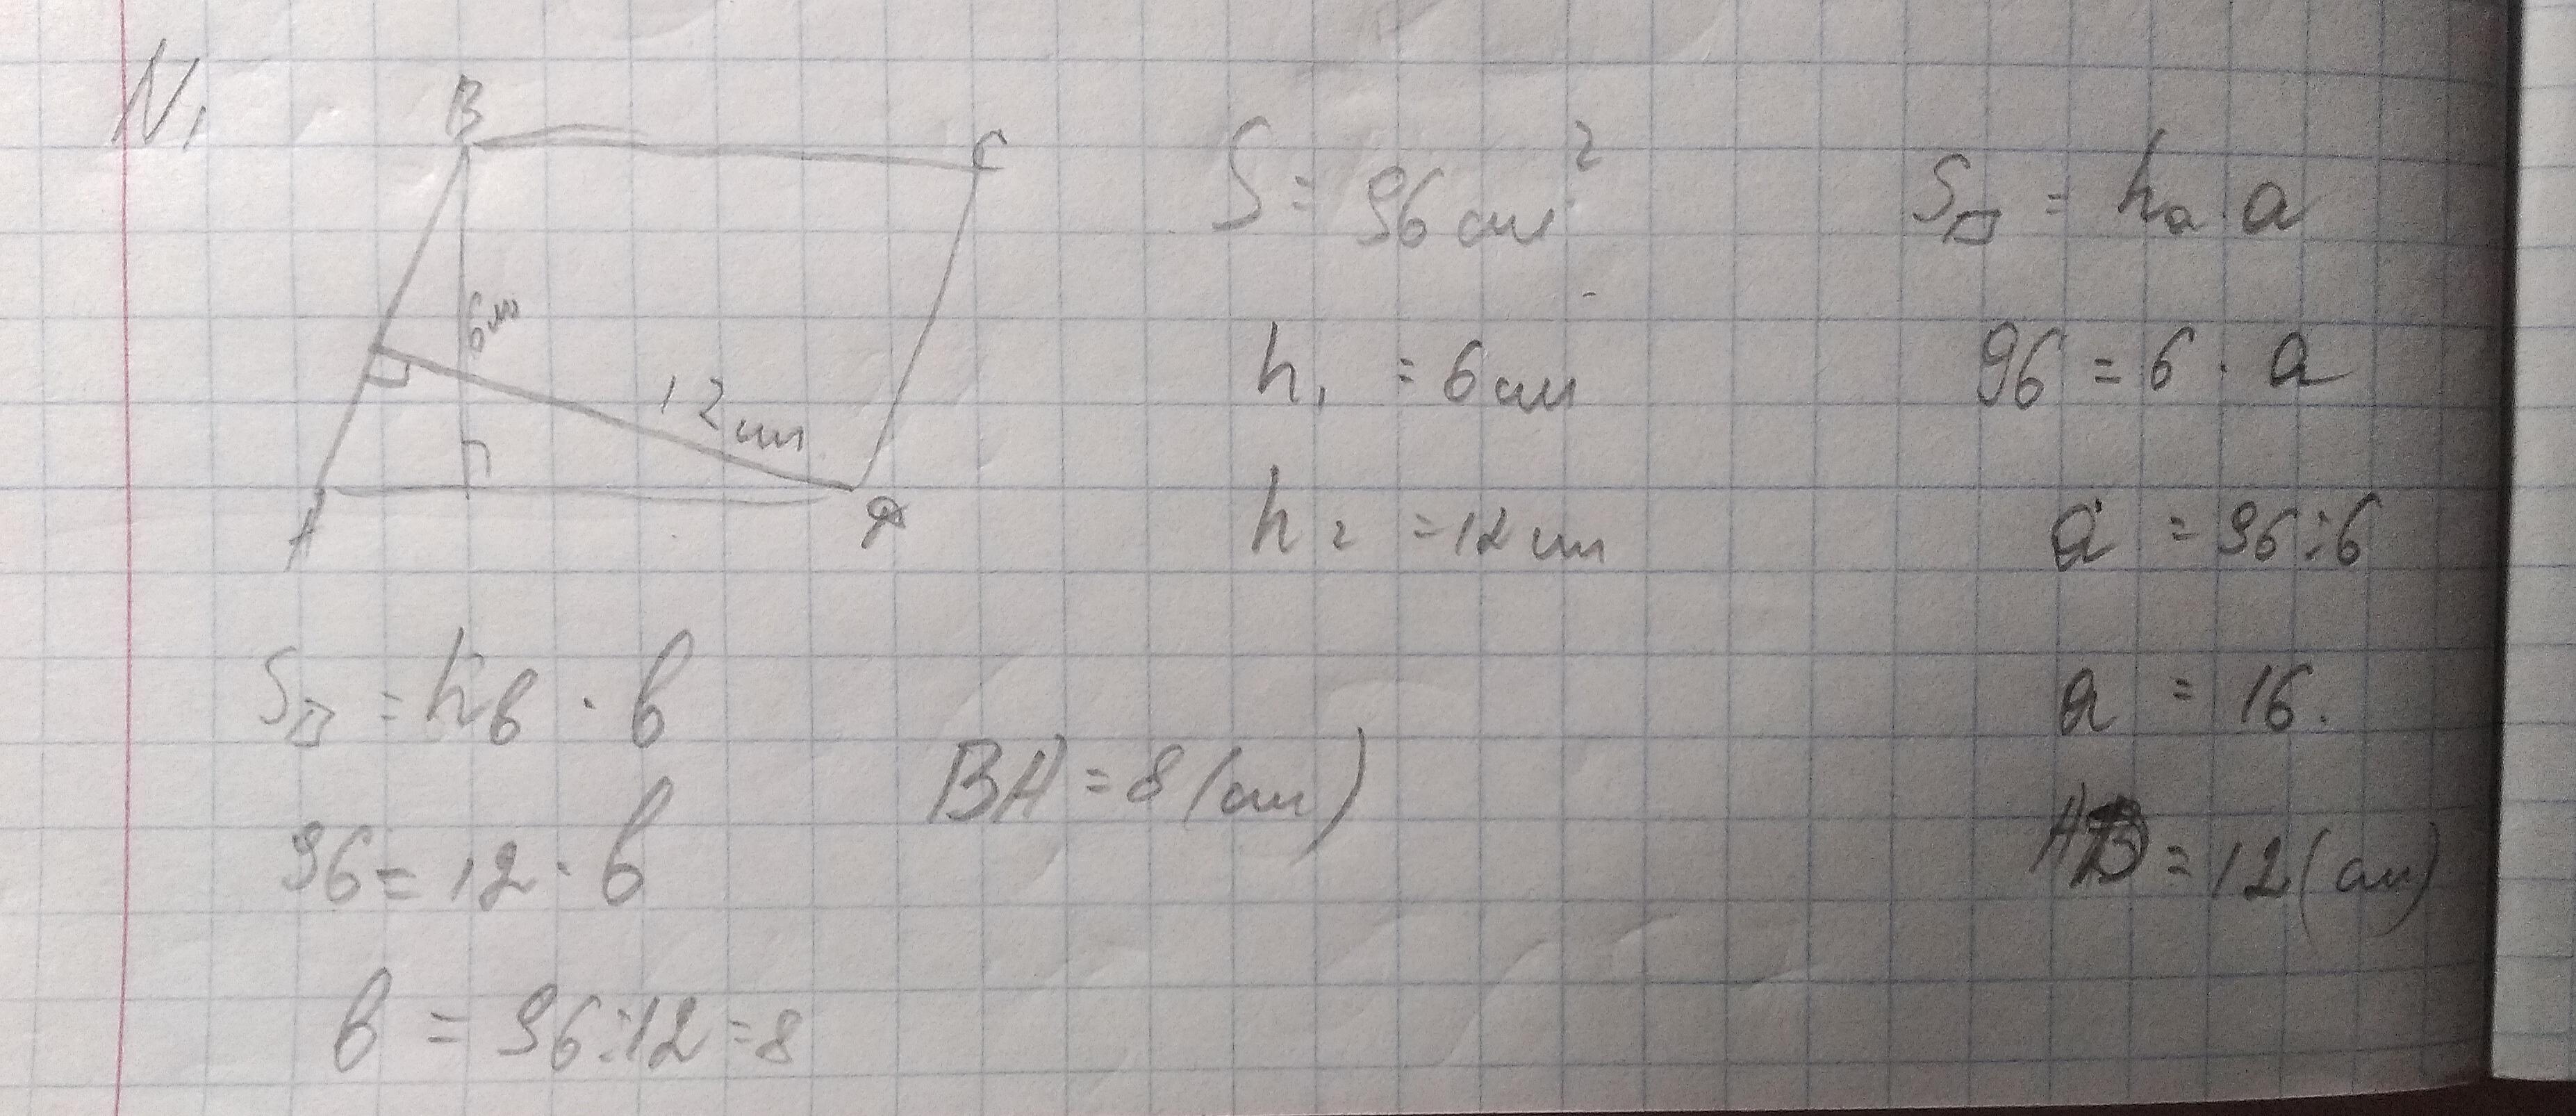 N1
B
C
6см
12 см
A
D
S = 96 см²
h₁ = 6 см
h₂ = 12 см
S▱ = hₐ · a
96 = 6 · a
a = 96 : 6
a = 16.
AB = 12 (см)
S▱ = hв · в
96 = 12 · в
в = 96 : 12 = 8
BA = 8 (см)